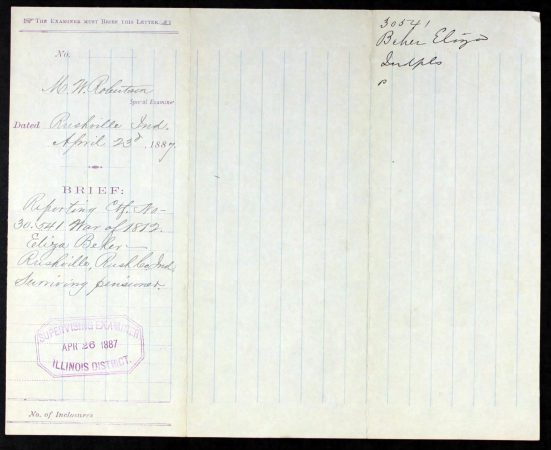 THE EXAMINER MUST BRIEF THIS LETTER
No.
M. W. Robertson
Special Examiner
Dated Rushville Ind.
April 23d, 1887.
BRIEF:
Reporting Ctf. No-
30.541. War of 1812.
Eliza Beker
Rushville, Rush Co, Ind
Surviving pensioner.
SUPERVISING EXAMINER
APR 26 1887
ILLINOIS DISTRICT.
No. of Inclosures
30541
Beker Eliza
Indpls